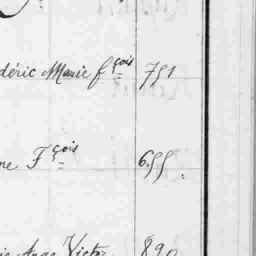 déric Marie fçois 751
ne Fçois 655
Ange Victr 890